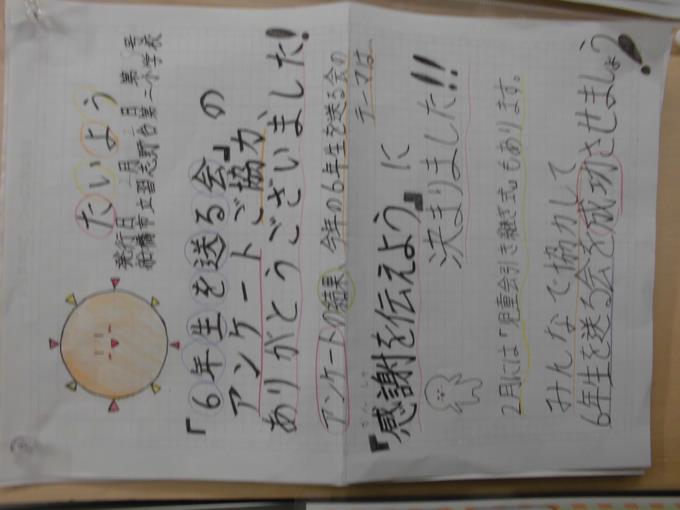 たいよう
発行日 月 日 第 号
船橋市立習志野台第二小学校
「6年生を送る会」の
アンケートご協力、
ありがとうございました!
アンケートの結果、今年の6年生を送る会の
テーマは、
『感謝を伝えよう』に
決まりました!!
2月には「児童会引き継ぎ式」もあります。
みんなで協力して
6年生を送る会を成功させましょう!